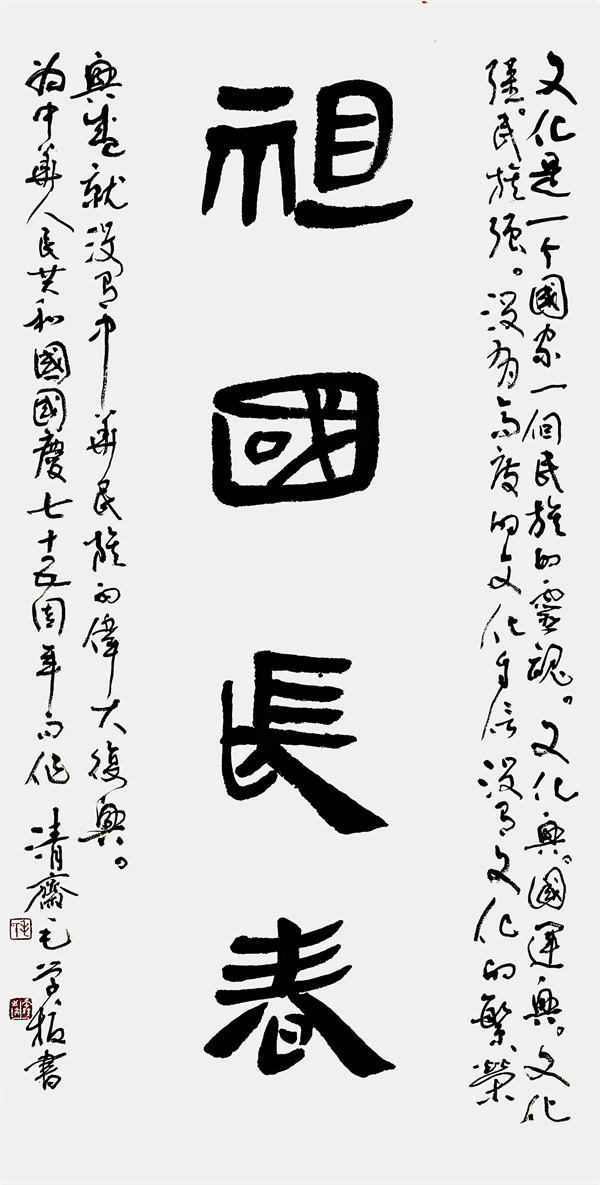 文化是一个國家一個民族的靈魂。文化興。國運興。文化
强。民族强。没有高度的文化自信没有文化的繁榮
祖國長春
興盛就没有中華民族的偉大復興。
为中華人民共和國國慶七十五周年而作 清齋毛学板書